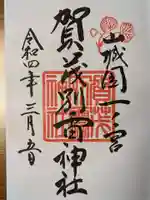 山城国一之宮
賀茂別雷神社
令和四年三月五日